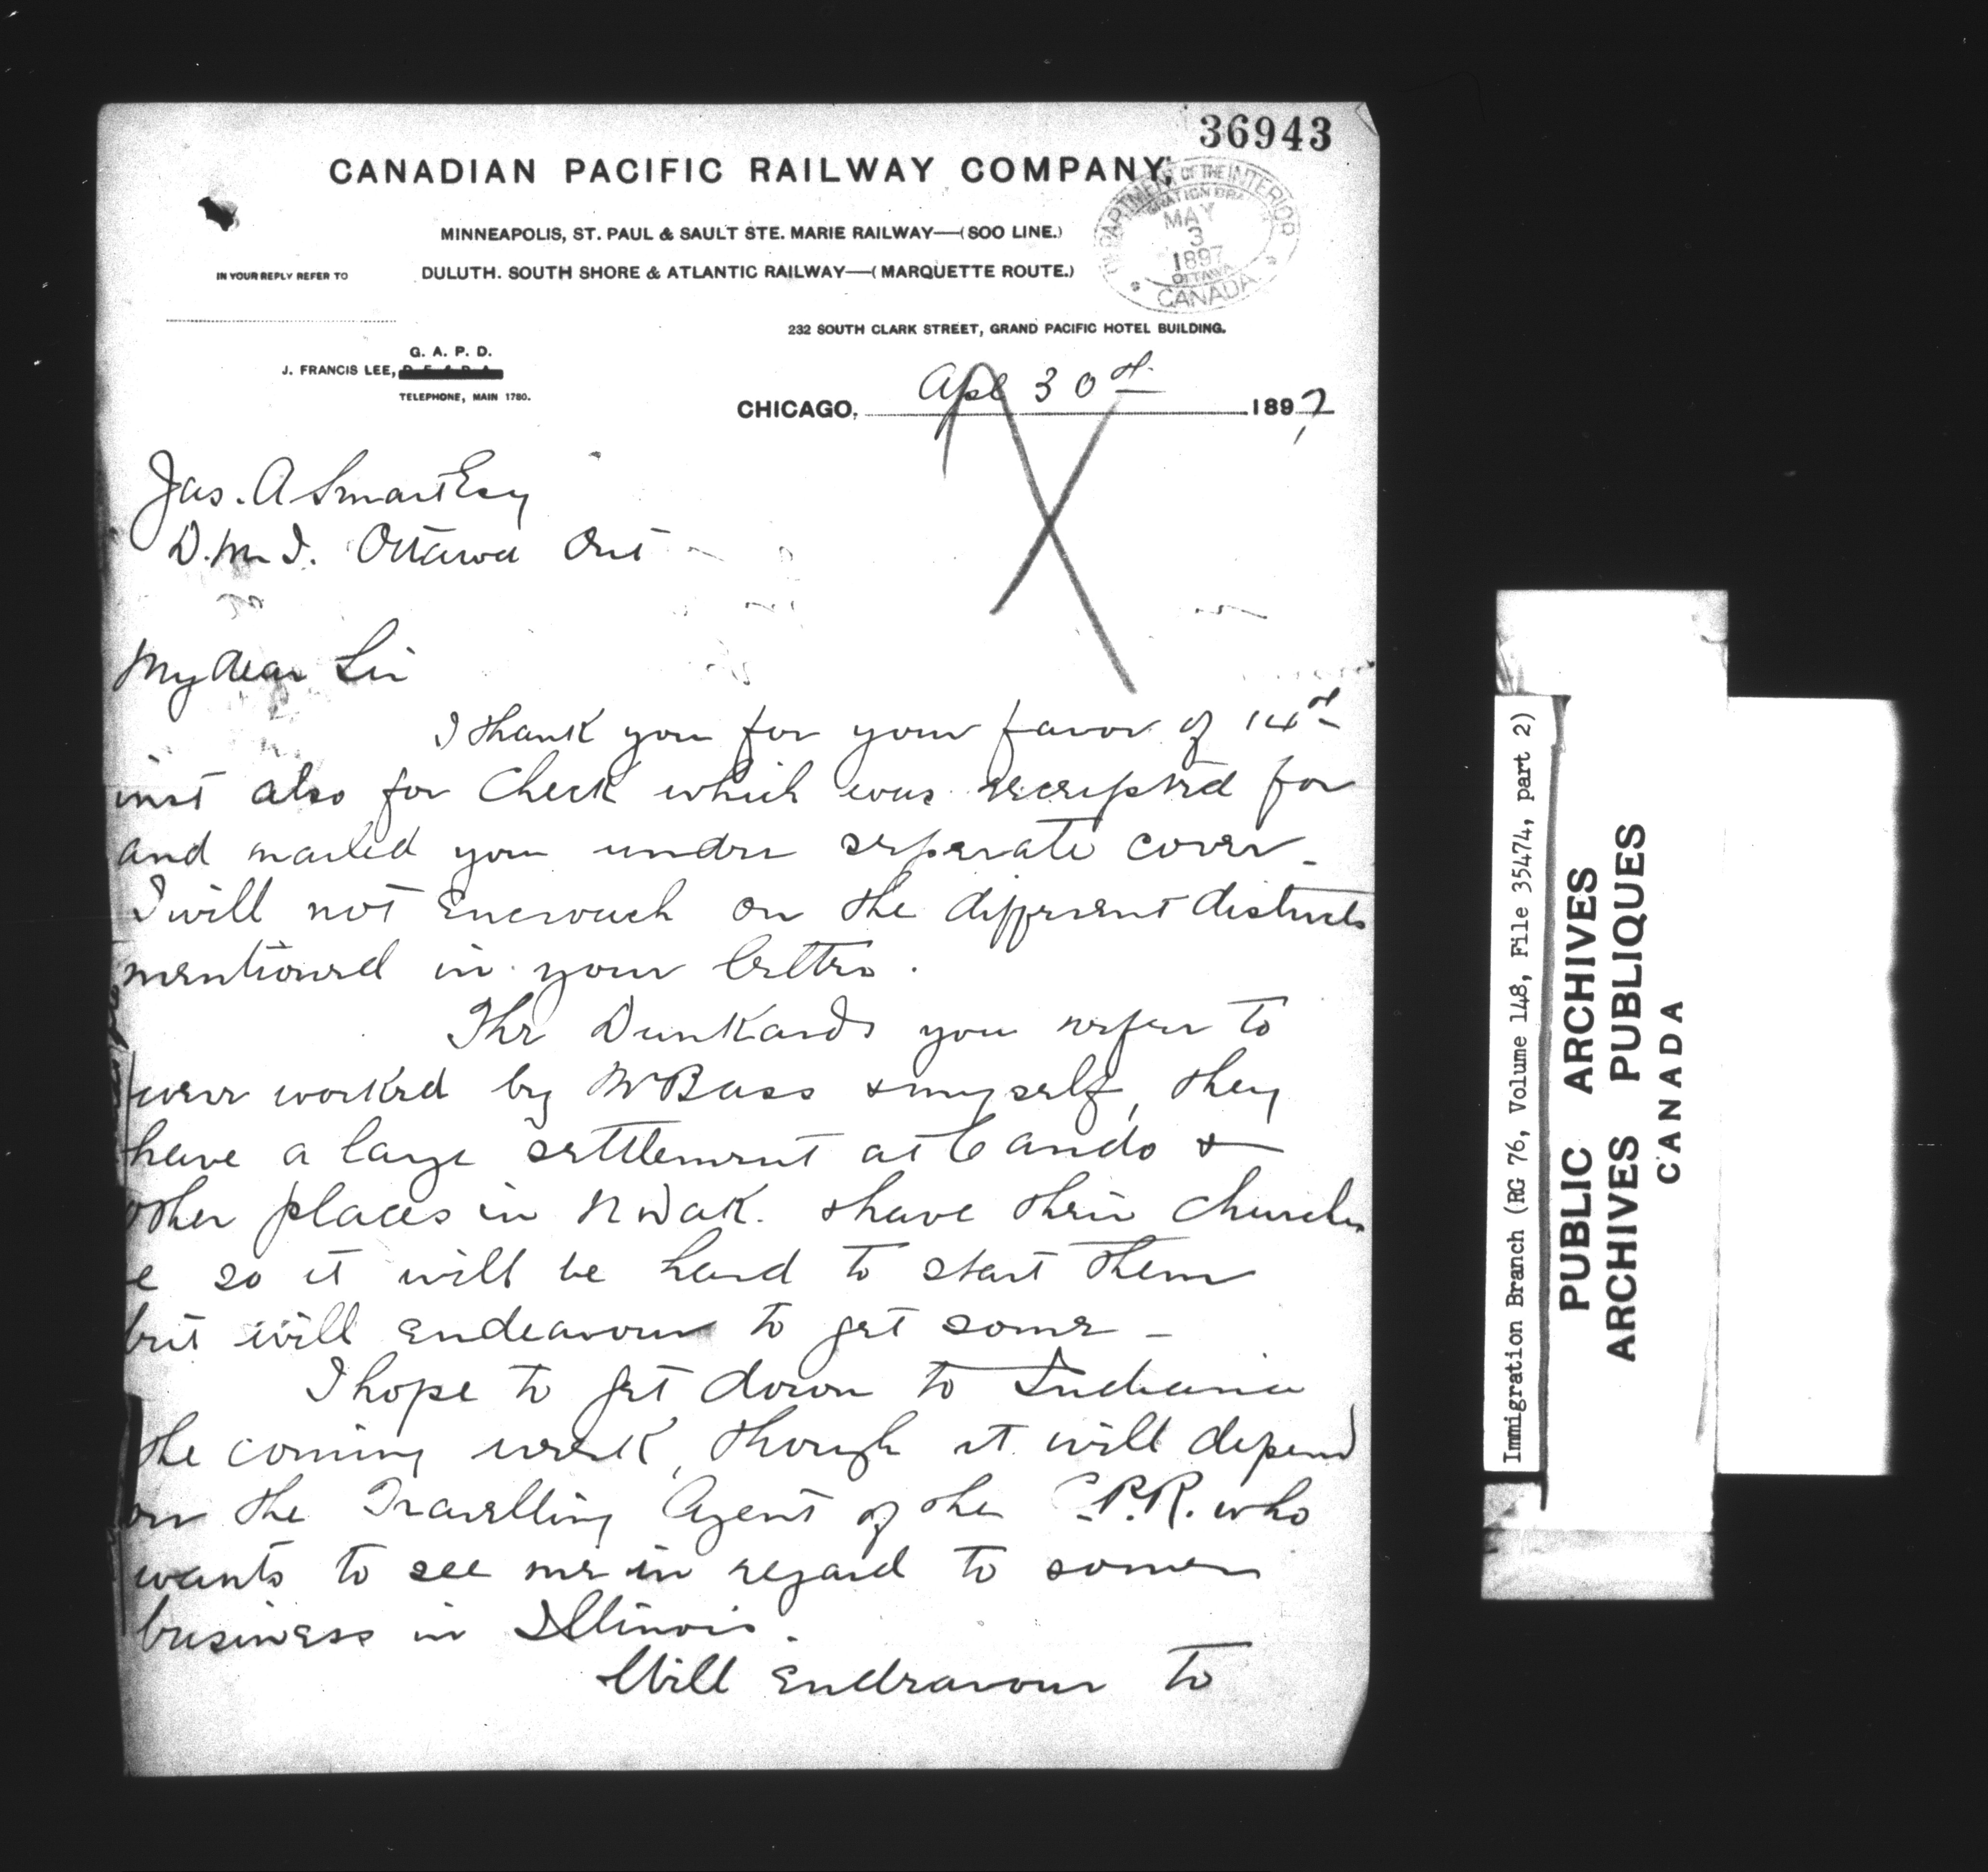 36943
CANADIAN PACIFIC RAILWAY COMPANY,
MINNEAPOLIS, ST. PAUL & SAULT STE. MARIE RAILWAY—(SOO LINE.)
DULUTH. SOUTH SHORE & ATLANTIC RAILWAY—(MARQUETTE ROUTE.)
IN YOUR REPLY REFER TO
DEPARTMENT OF THE INTERIOR
MAY
3
1897
OTTAWA
CANADA
232 SOUTH CLARK STREET, GRAND PACIFIC HOTEL BUILDING.
G. A. P. D.
J. FRANCIS LEE,
TELEPHONE, MAIN 1780.
CHICAGO, Apl 30th 1897
Jas. A Smart Esq
D.M.I. Ottawa Ont
My dear Sir
I thank you for your favor of 14th
inst also for Check which was receipted for
and mailed you under seperate cover.
I will not encroach on the different districts
mentioned in your letter.
The Dunkards you refer to
were worked by Mr Bass & myself, they
have a large settlement at Cando &
other places in N Dak. & have their churches
so it will be hard to start them
but will endeavour to get some –
I hope to get down to Indiana
the coming week, though it will depend
on the Travelling Agent of the C.P.R. who
wants to see me in regard to some
business in Illinois.
Will endeavour to
Immigration Branch (RG 76, Volume 148, File 35474, part 2)
PUBLIC ARCHIVES
ARCHIVES PUBLIQUES
CANADA